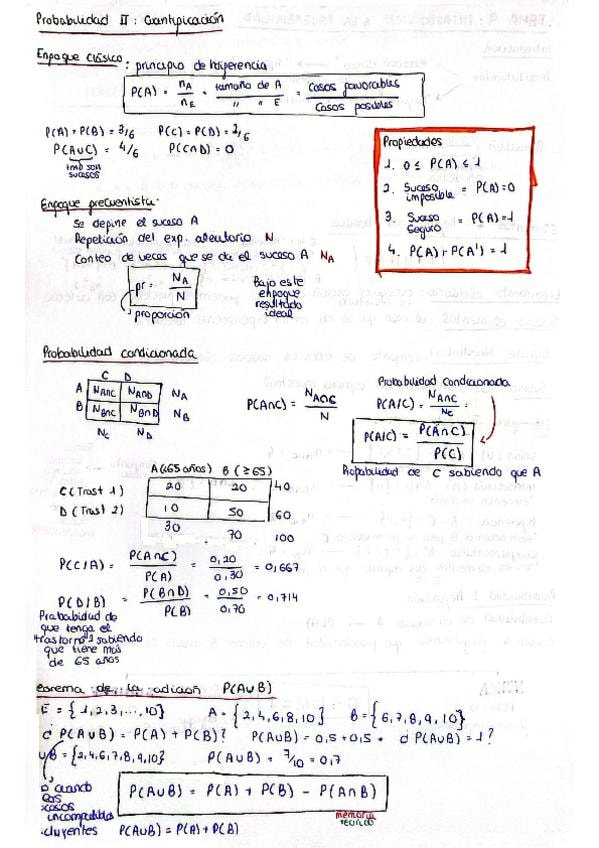 Probabilidad II: Cuantificación
Enfoque clásico: principio de indiferencia
P(A) = nA/nE = tamaño de A / " " E = Casos favorables / Casos posibles
P(A) = P(B) = 3/6 P(C) = P(D) = 2/6
P(A∪C) = 4/6 P(C∩D) = 0
sucesos
Propiedades
1. 0 ≤ P(A) ≤ 1
2. Suceso imposible = P(A)=0
3. Suceso seguro = P(A)=1
4. P(A) + P(A') = 1
Enfoque frecuentista.
Se define el suceso A
Repetición del exp. aleatorio N
Conteo de veces que se da el suceso A NA
pr = NA/N
proporción
Bajo este
enfoque
resultado
ideal
Probabilidad condicionada
C D
A NA∩C NA∩D NA
B NB∩C NB∩D NB
NC ND
P(A∩C) = NA∩C/N
Probabilidad condicionada
P(A/C) = NA∩C/NC =
P(A/C) = P(A∩C)/P(C)
Probabilidad de C sabiendo que A
A (<65 años) B (≥65)
C (Trast 1) 20 20 40
D (Trast 2) 10 50 60
30 70 100
P(C/A) = P(A∩C)/P(A) = 0,20/0,30 = 0,667
P(D/B) = P(B∩D)/P(B) = 0,50/0,70 = 0,714
Probabilidad de
que tenga el
trastorno sabiendo
que tiene más
de 65 años
eorema de la adición P(A∪B)
E = {1,2,3,...,10} A = {2,4,6,8,10} B = {6,7,8,9,10}
¿P(A∪B) = P(A) + P(B)? P(A∪B) = 0,5+0,5 = ¿P(A∪B)=1?
∪B = {2,4,6,7,8,9,10} P(A∪B) = 7/10 = 0,7
cuando
P(A∪B) = P(A) + P(B) - P(A∩B)
incompatibles
cluyentes P(A∪B) = P(A)+P(B)